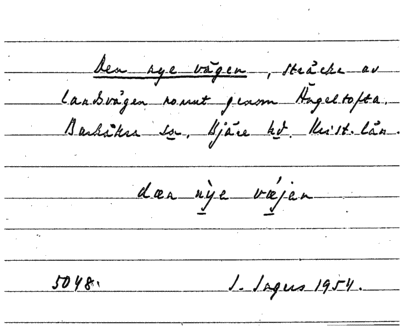 Den nye vägen, sträcka av
landsvägen norrut genom Ängeltofta.
Barkåkra sn, Bjäre hd. Krist. län.
dæn nỳe vǽjen
5048. I. Ingers 1954.